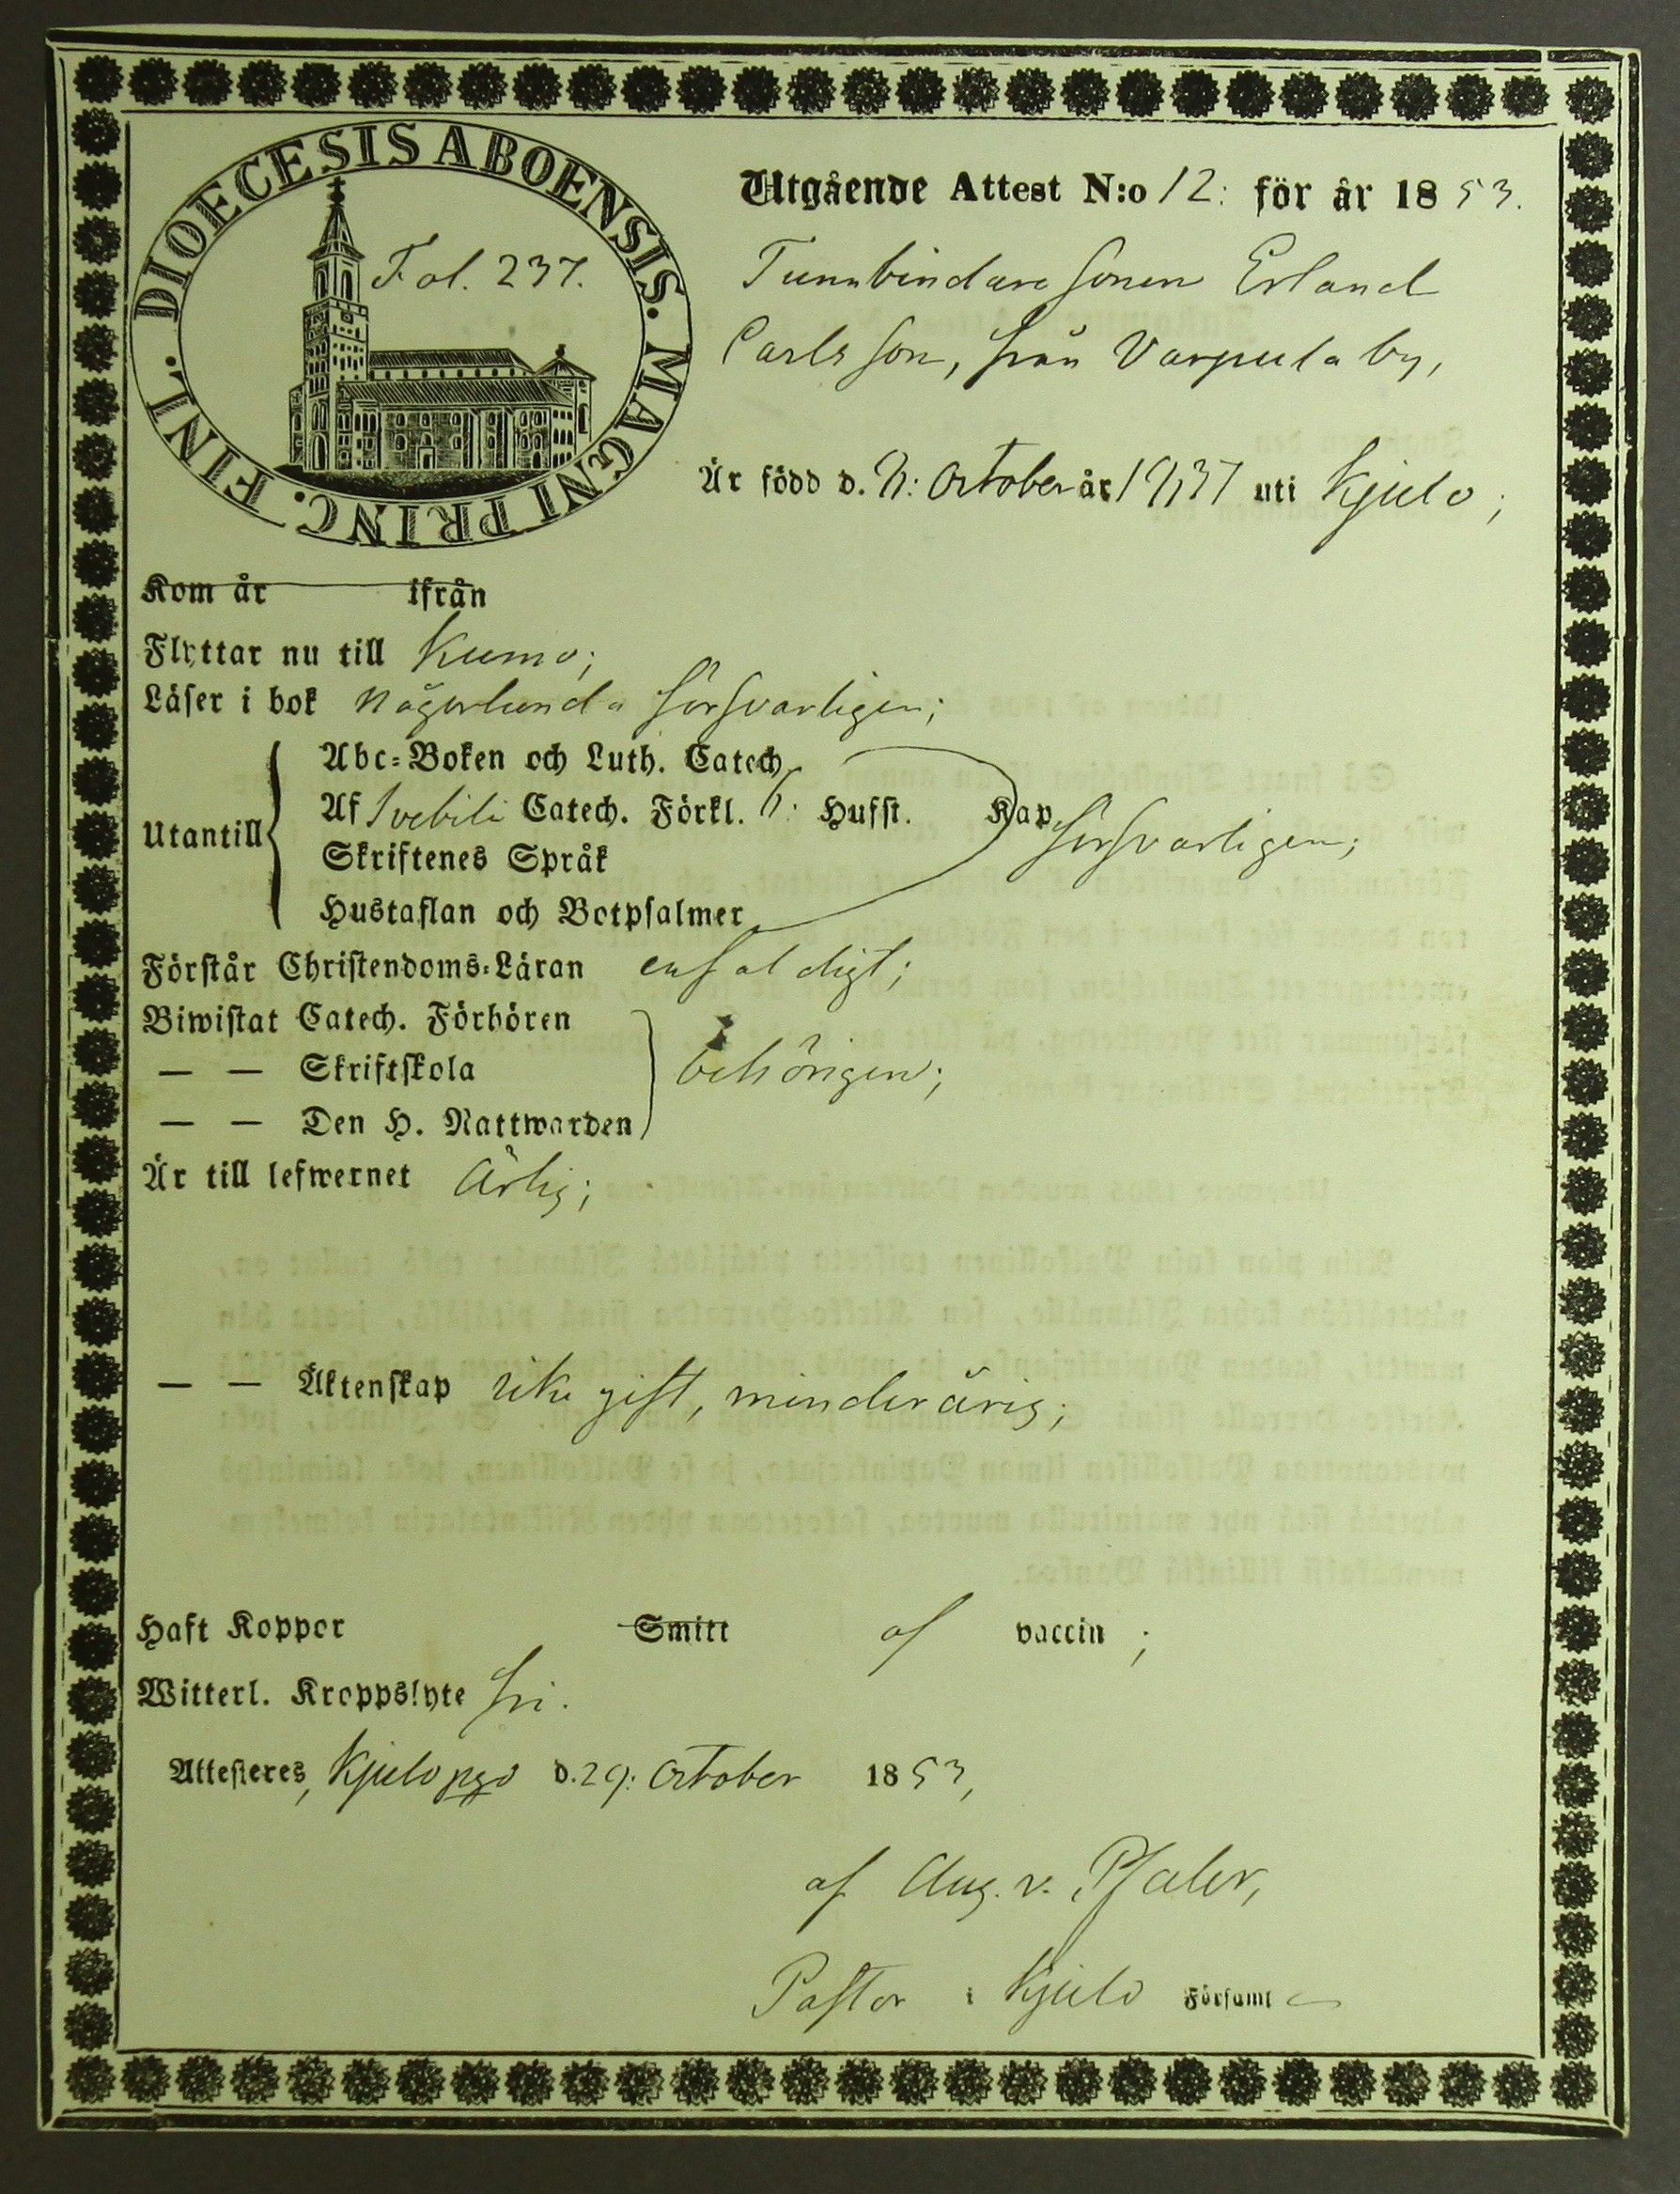 DIOECESIS ABOENSIS. MAGNI PRINC. FINL.
Fol. 237.
Utgående Attest N:o 12: för år 1853.
Tunnbindaresonen Erland
Carlsson, från Varpula by,
Är född d. 8: October år 1837 uti Kjulo;
Kom år ifrån
Flyttar nu till Kumo;
Läser i bok någorlunda försvarligen;
Utantill
Abc-Boken och Luth. Catech.
Af Svebili Catech. Förkl. 6: Hufst. Kap. försvarligen;
Skriftenes Språk
Hustaflan och Botpsalmer
Förstår Christendoms-Läran enfaldigt;
Biwistat Catech. Förhören
— — Skriftskola behörigen;
— — Den H. Nattwarden
Är till lefwernet ärlig;
— — Äktenskap icke gift, minderårig;
Haft Koppor Smitt af vaccin;
Witterl. Kroppslyte fri.
Attesteres, Kjulo pgd d. 29: October 1853,
af Aug. v. Pfaler,
Pastor i Kjulo Församl